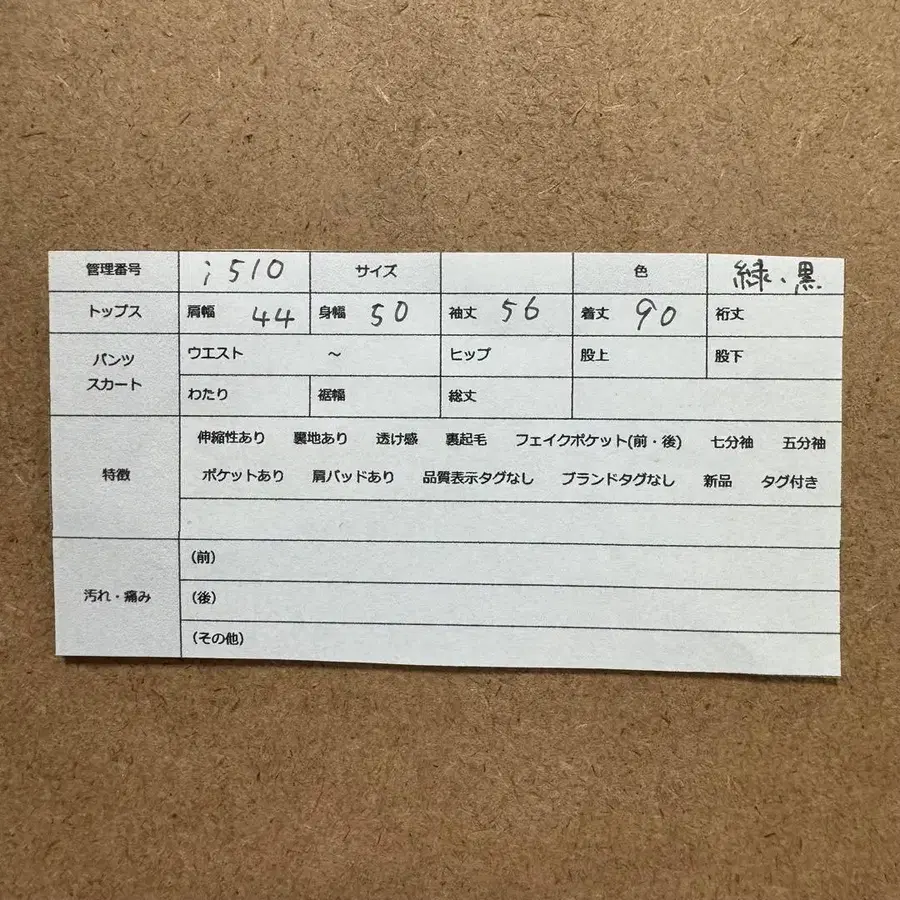 管理番号 i510 サイズ 色 緑・黒
トップス 肩幅 44 身幅 50 袖丈 56 着丈 90 裄丈
パンツ スカート ウエスト ～ ヒップ 股上 股下
わたり 裾幅 総丈
特徴 伸縮性あり 裏地あり 透け感 裏起毛 フェイクポケット(前・後) 七分袖 五分袖
ポケットあり 肩パッドあり 品質表示タグなし ブランドタグなし 新品 タグ付き
汚れ・痛み (前)
(後)
(その他)